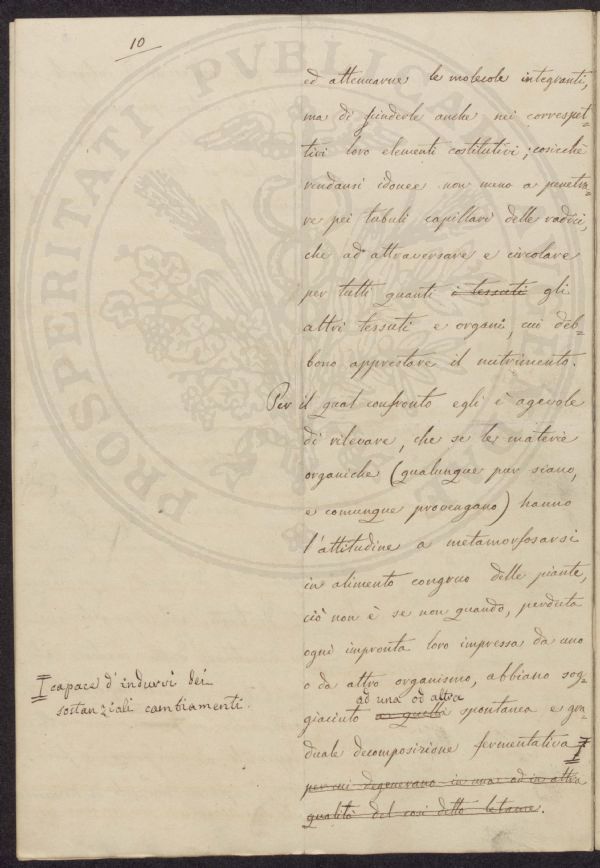 10
ed attenuarne le molecole integranti,
ma di fonderle anche nei correspet-
tivi loro elementi costitutivi; cosicchè
rendansi idonee non meno a penetra-
re pei tubuli capillari delle radici,
che ad attraversare e circolare
per tutti quanti i tessuti gli
altri tessuti e organi, cui deb-
bono apprestare il nutrimento.
Per il qual confronto egli è agevole
di rilevare, che se le materie
organiche (qualunque pur siano,
e comunque provengano) hanno
l'attitudine a metamorfosarsi
in alimento congruo delle piante,
ciò non è se non quando, perduta
ogni impronta loro impressa da uno
o da altro organismo, abbiano sog-
ad una od altra
giaciuto a quella spontanea e gra-
duale decomposizione fermentativa
per cui degenerano in una od in altra
qualità del così detto letame.
capace d'indurvi dei
sostanziali cambiamenti.
PROSPERITATI PVBLICAE